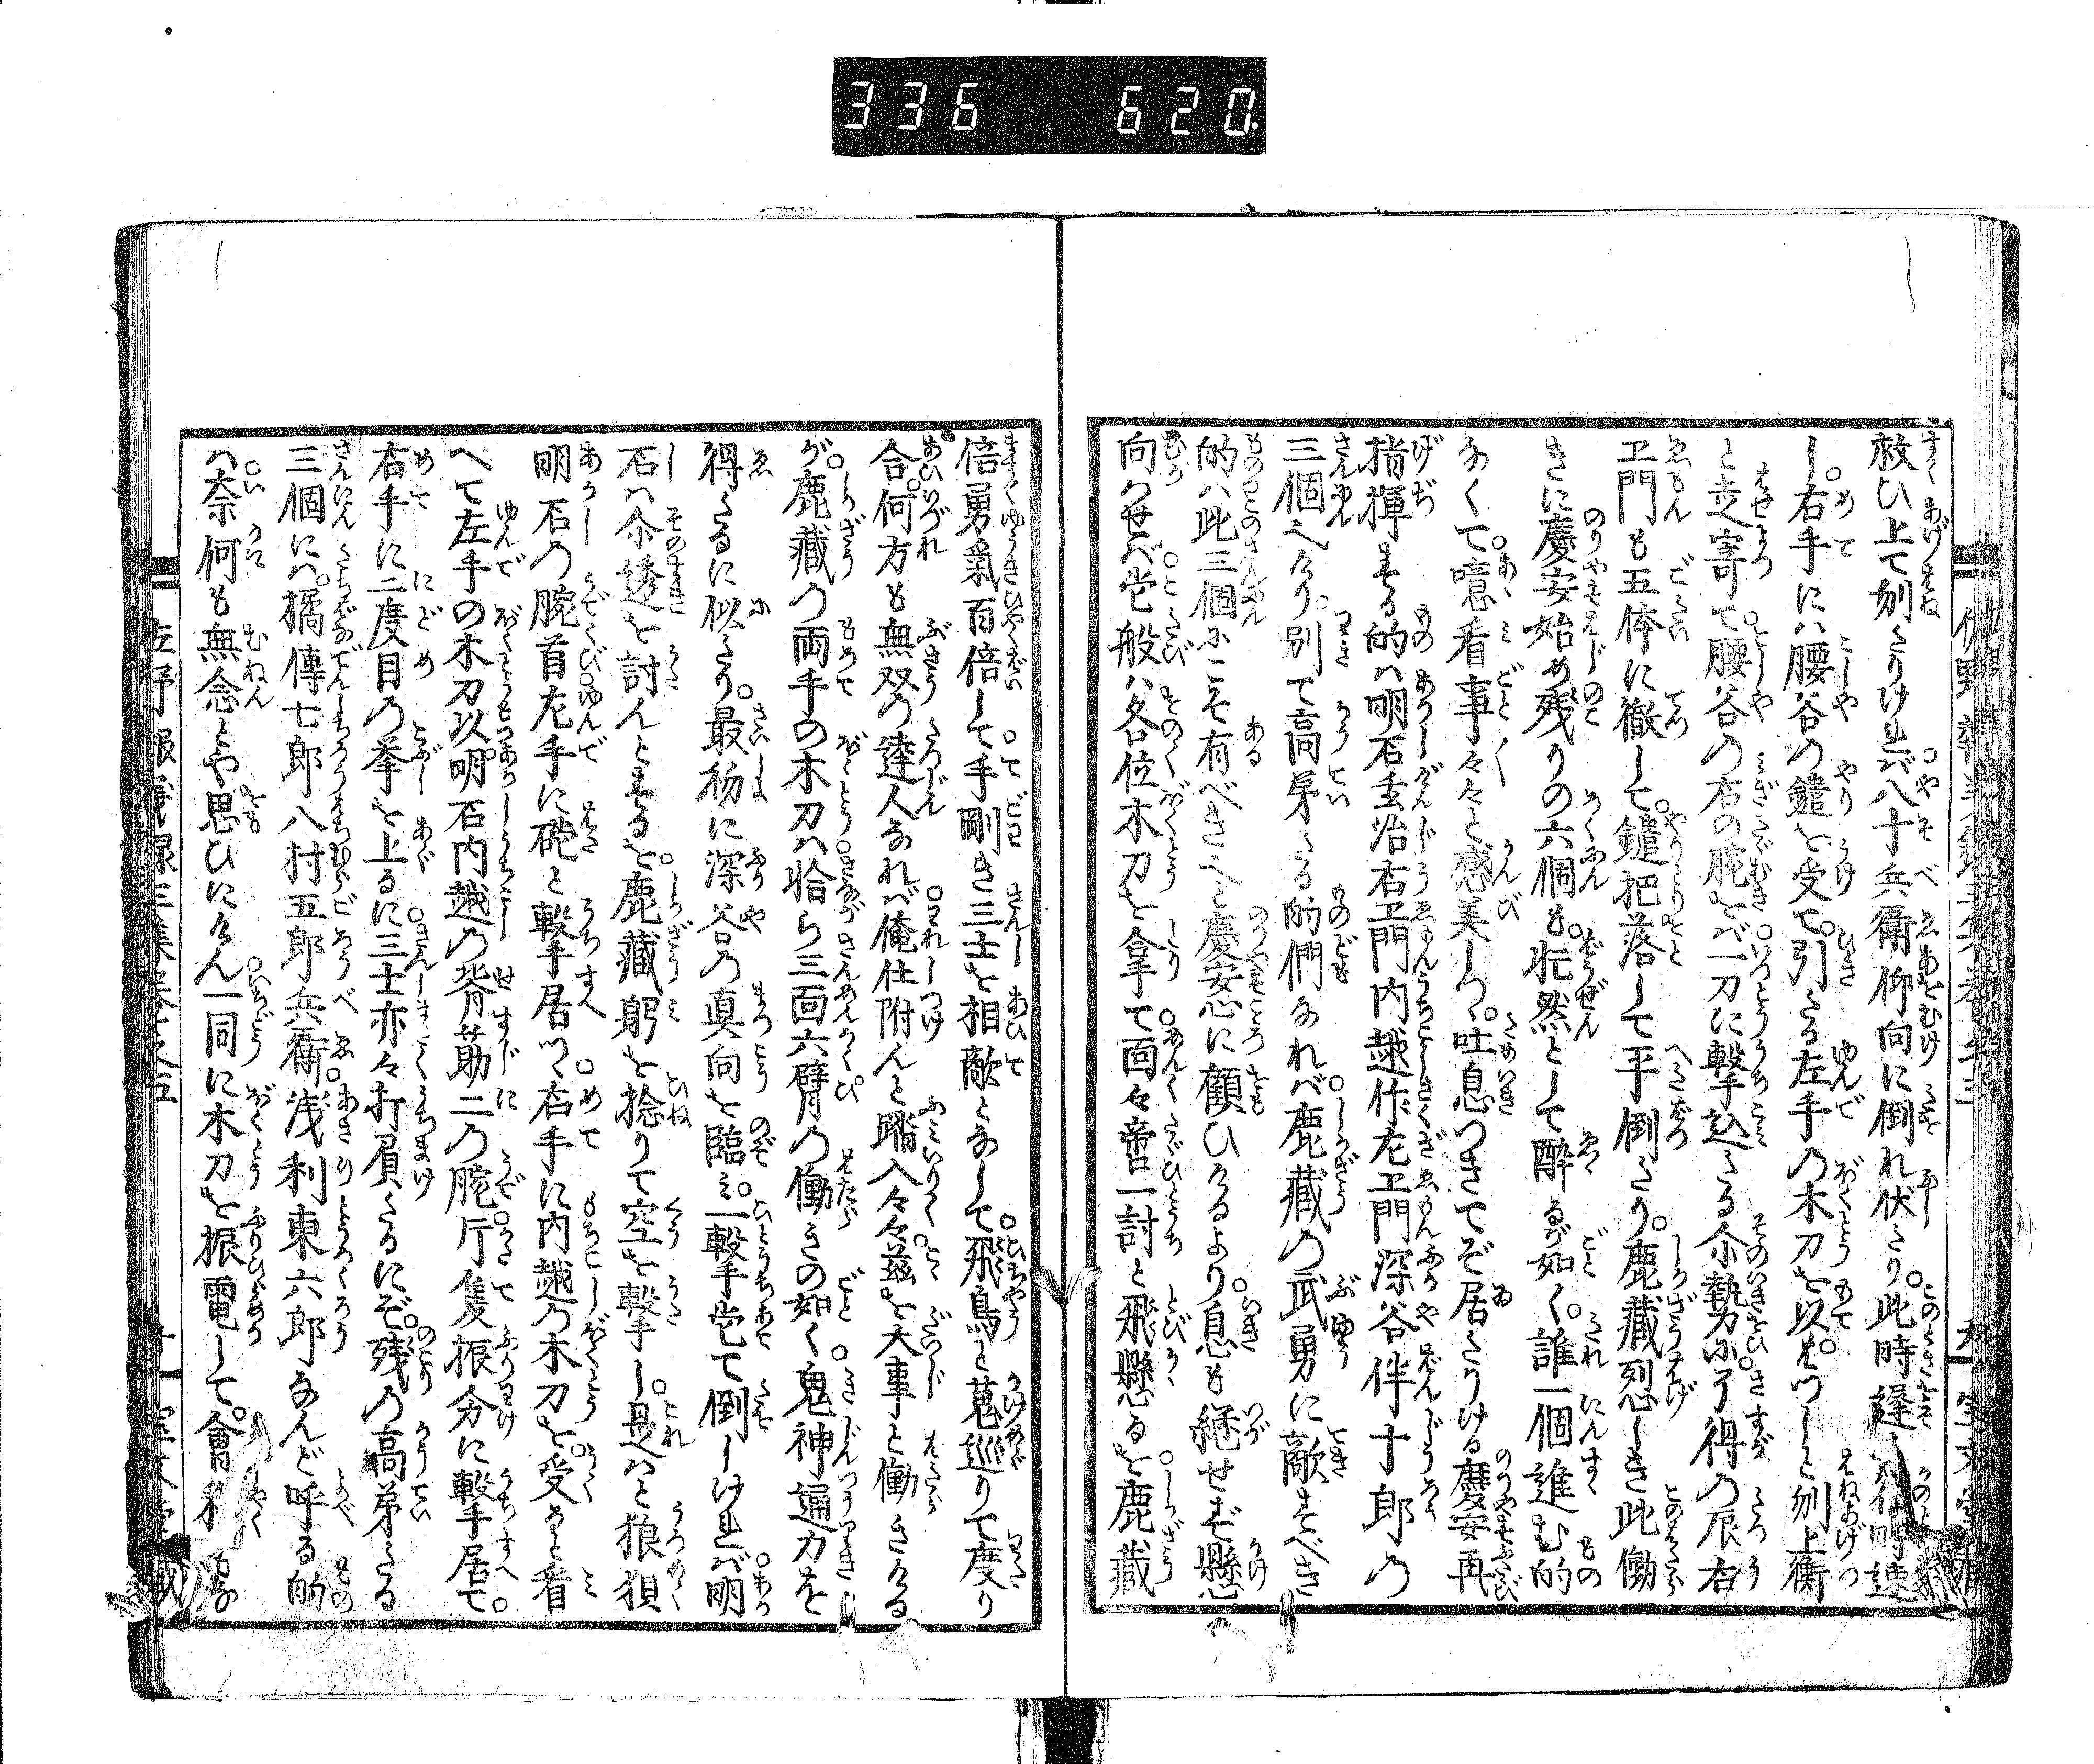 336 620.
救ひ上て刎たりけれバ八十兵衛仰向に倒れ伏たり此時遅
し右手にハ腰谷の鑓を受て引たる左手の木刀を以はつしと刎上衝
と走寄て腰谷の右の腕をバ一刀に撃込たる尒勢ひに了得の辰右
ヱ門も五体に徹して鑓把落して平倒たり鹿蔵烈しき此働
きに慶安始め残りの六個も忙然として酔るが如く誰一個進む的
なくて噫看事々々と感美しつ吐息つきてぞ居たりける慶安再
指揮する的ハ明石重治右ヱ門内越作左ヱ門深谷伴十郎の
三個なり別て高弟たる的們なれバ鹿蔵の武勇に敵すべき
的ハ此三個にこそ有べきと慶安心に顧ひけるより息も継せず懸
向ハせバ這般ハ各位木刀を拿て面々啻一討と飛懸るを鹿蔵
倍勇氣百倍して手剛き三士を相敵となして飛鳥と蒐巡りて度り
合何方も無双の達人なれバ俺仕附んと踏入々々茲を大事と働きける
が鹿蔵の両手の木刀ハ恰ら三面六臂の働きの如く鬼神通力を
得たるに似たり最初に深谷の真向を臨ミ一撃当て倒しけれバ明
石ハ尒透を討んとするを鹿蔵躬を捻りて空を撃し是ハと狼狽
明石の腕首左手に礑と撃居つ右手に内越の木刀を受ると看
へて左手の木刀以明石内越の背筋二の腕斤隻振分に撃居て
右手に二度目の拳を上るに三士亦々打負たるにぞ残の高弟たる
三個にハ橘傳七郎八村五郎兵衛浅利東六郎なんど呼る的
ハ奈何も無念とや思ひけん一同に木刀を振電して會釈